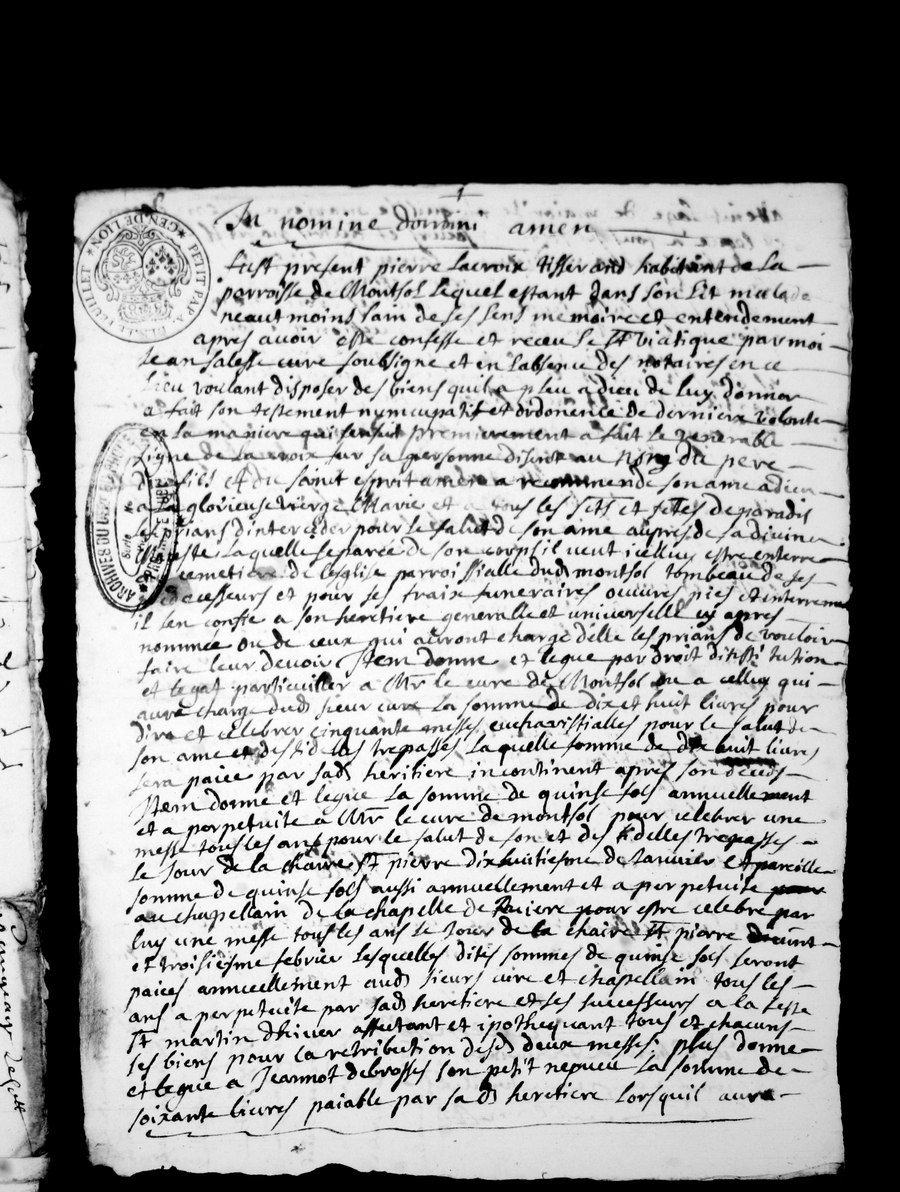 1
In nomine domini amen
GEN. DE LION PETIT PAP
FEUILLET
fust present pierre Lacroix tisserand habitant de La
perroisse de Montsol Lequel estant dans son Lit malade
neautmoins sain de ses sens memoire et entendement
apres avoir este confesse et receu Le St viatique par moi
Jean Salesse cure soubsigne et en Labsence des notaires en ce
Lieu voulant disposer des biens quil a pleu a dieu de Luy donner
a fait son testement nuncupatif et ordonence de derniere volonte
en La maniere qui sensuit premierement a fait Le venerable
signe de La croix sur sa personne disant au nom du pere
du fils et du saint esprit amen a recommende son ame a dieu
a La glorieuse vierge Marie et a tous les Sts et Stes de paradis
les prians dinterceder pour Le salut de son ame aupres de sa divine
Majeste Laquelle separee de son corps il veut icelluy estre enterre
cemetiere de Leglise parroissialle dud montsol tombeau de ses
predecesseurs et pour ses fraix funeraires oeuvres pies et interremen
il sen confie a son heretiere generalle et universelle cy apres
nommee ou de ceux qui auront charge delle les prians de vouloir
faire leur devoir Item donne et legue par droit ditistitution
et legat particullier a Mr le cure de Montsol ou a celluy qui
aura charge dud sieur cure La somme de dix et huit livres pour
dire et celebrer cinquante messes eucharistialles pour le salut de
son ame et des fidelles trepasses Laquelle somme de dix huit livres
sera paiee par sad heritiere incontinent apres son deceds
Item donne et legue La somme de quinse sols annuellement
et a perpetuite a Mr le cure de montsol pour celebrer une
messe tous les ans pour le salut de son et des fidelles trepasses
Le Jour de la chaire St pierre dixhuitiesme de Janvier et pareille
somme de quinse sols aussi annuellement et a perpetuite
au chapellain de la chapelle de pour estre celebre par
luy une messe tous les ans Le Jour de la chaire St pierre
et troisiesme febvrier Lesquelles dites sommes de quinse sols seront
paiees annuellement aud sieurs cure et chapellain tous les
ans a perpetuite par sad heretiere et ses successeurs a la feste
St martin dhiver affectant et ipothequant tous et chacuns
ses biens pour la retribution desd deux messes plus donne
et legue a Jeannot debrosses son petit nepveu La somme de
soixante livres paiable par sad heretiere Lorsquil aura
ARCHIVES DU DEP